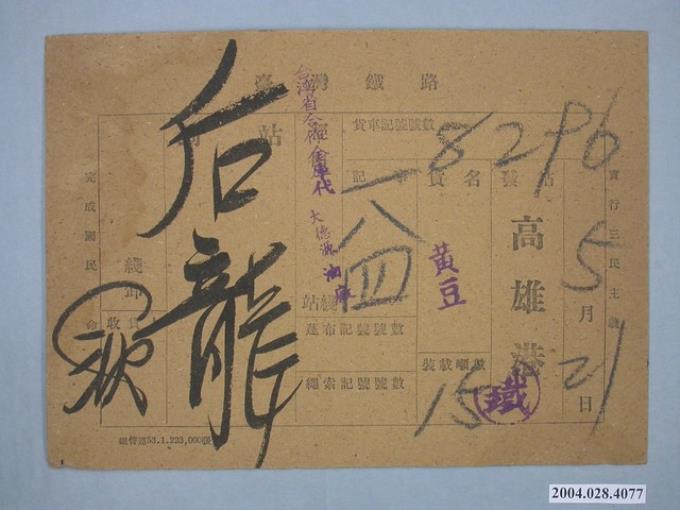 臺灣鐵路
實行三民主義
完成國民
發站
高雄港
5月21日
貨車記號號數
8296
貨名
黃豆
裝載噸數
15
鐵
記事
一八四
台灣省合作金庫代
大德源油廠
蓬布記號號數
繩索記號號數
到站
后龍
經站
綫
卸
收貨
鐵管運53.1.223,000張
2004.028.4077